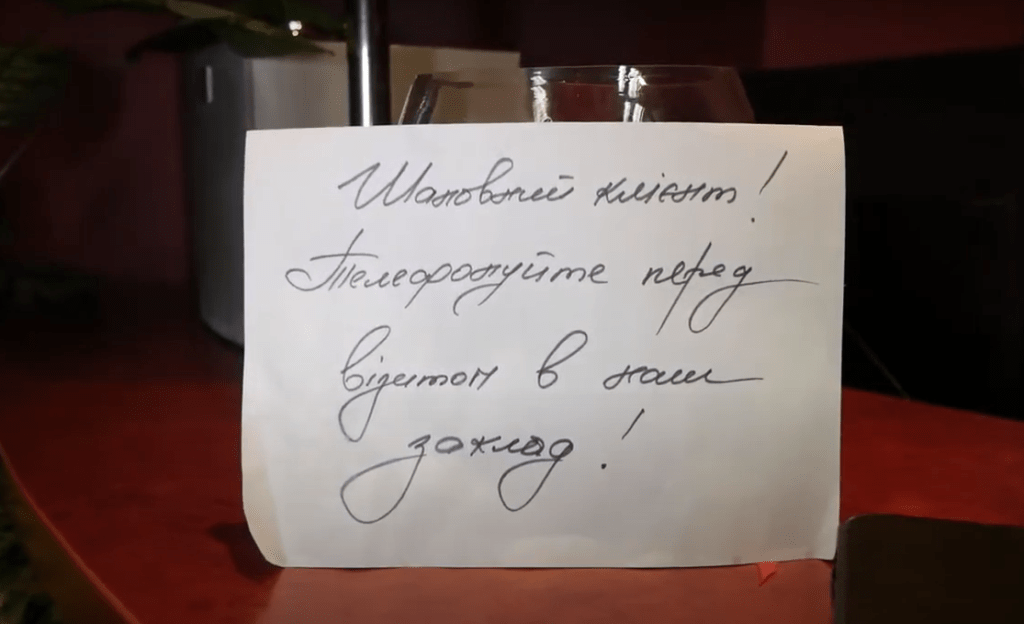 Шановний клієнт!
Телефонуйте перед
візитом в наш
заклад!